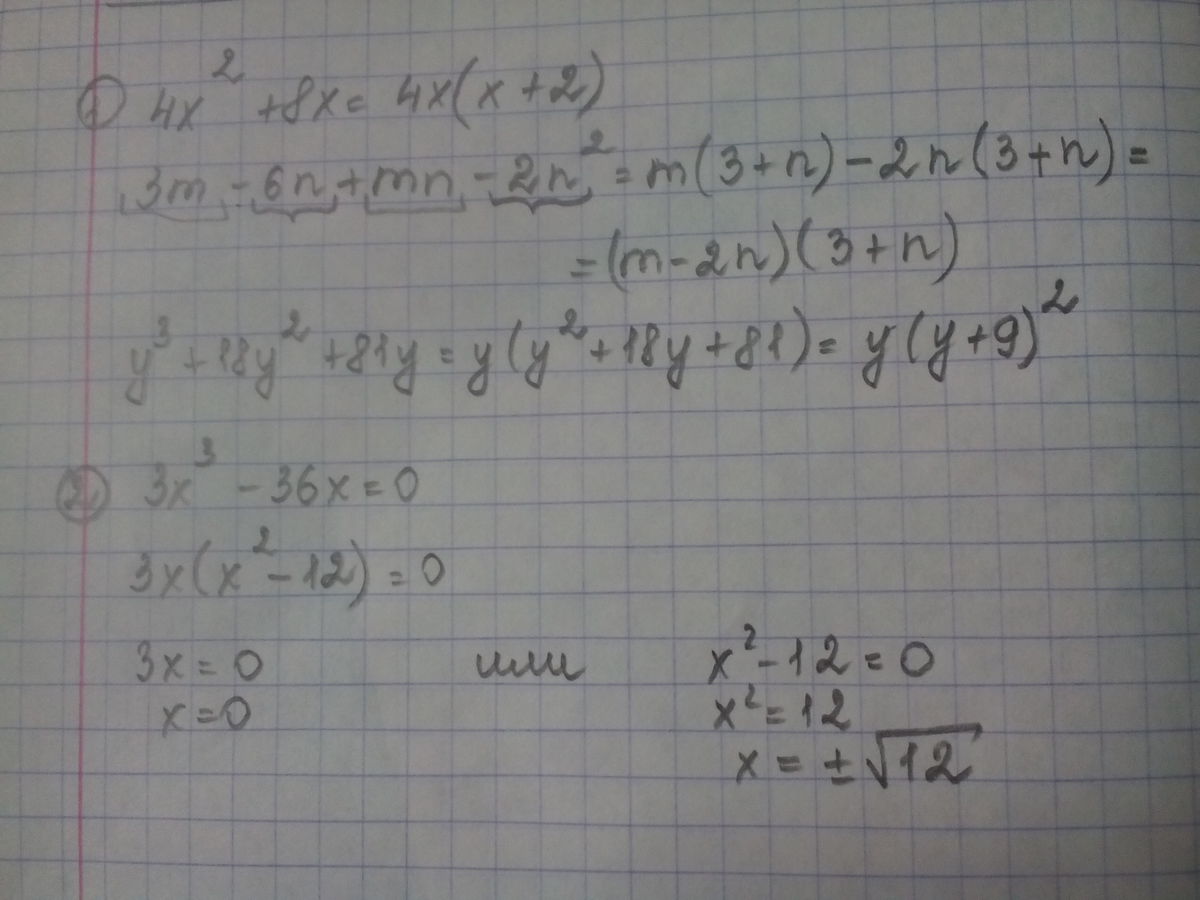 ① 4x² + 8x = 4x(x + 2)
3m - 6n + mn - 2n² = m(3 + n) - 2n(3 + n) =
= (m - 2n)(3 + n)
y³ + 18y² + 81y = y(y² + 18y + 81) = y(y + 9)²
② 3x³ - 36x = 0
3x(x² - 12) = 0
3x = 0 или x² - 12 = 0
x = 0 x² = 12
x = ± √12